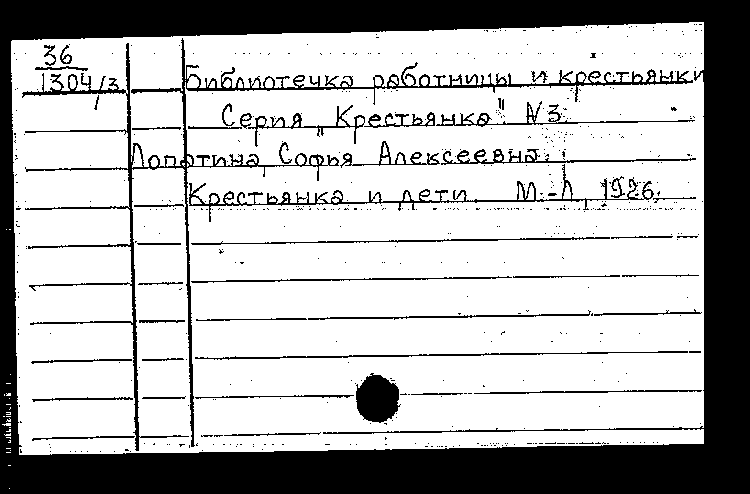 36
1304/3
Библиотечка работницы и крестьянки
Серия „Крестьянка" N 3.
Лопатина, Софья Алексеевна.
Крестьянка и дети. М.-Л, 1926.